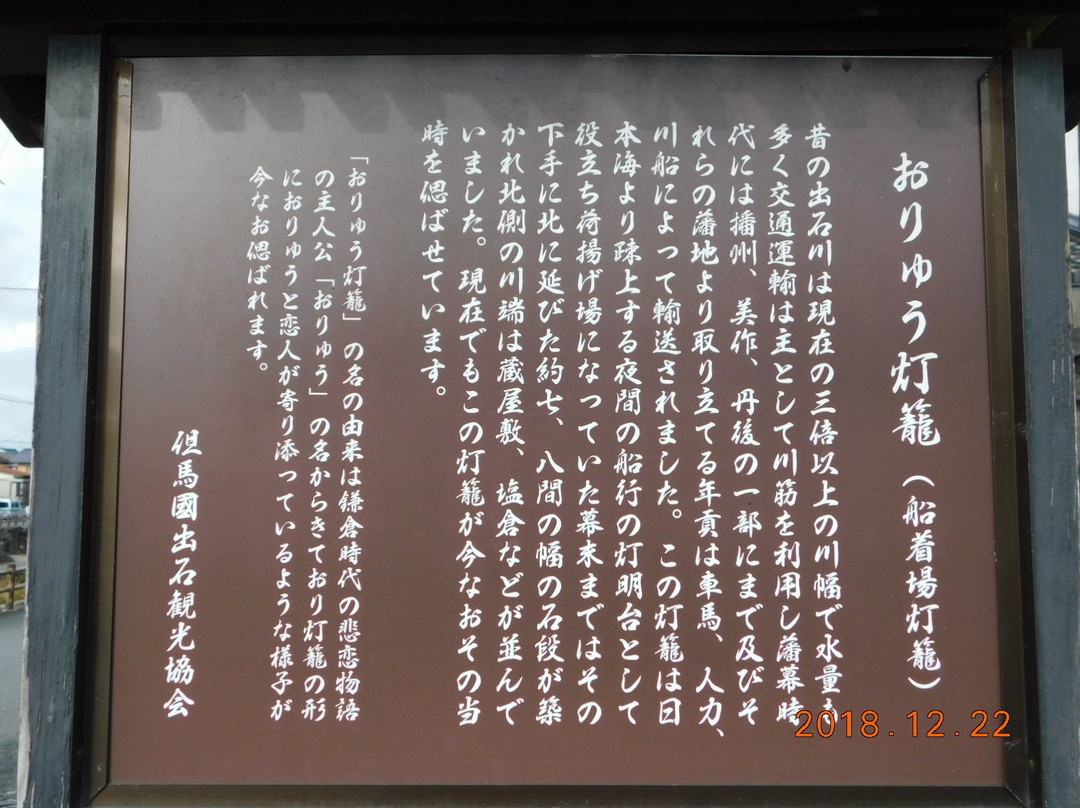 おりゅう灯籠(船着場灯籠)
昔の出石川は現在の三倍以上の川幅で水量も
多く交通運輸は主として川筋を利用し藩幕時
代には播州、美作、丹後の一部にまで及びそ
れらの藩地より取り立てる年貢は車馬、人力、
川船によって輸送されました。この灯籠は日
本海より疎上する夜間の船行の灯明台として
役立ち荷揚げ場になっていた幕末まではその
下手に北に延びた約七、八間の幅の石段が築
かれ北側の川端は蔵屋敷、塩倉などが並んで
いました。現在でもこの灯籠が今なおその当
時を偲ばせています。
「おりゅう灯籠」の名の由来は鎌倉時代の悲恋物語
の主人公「おりゅう」の名からきており灯籠の形
におりゅうと恋人が寄り添っているような様子が
今なお偲ばれます。
但馬國出石観光協会
2018.12.22